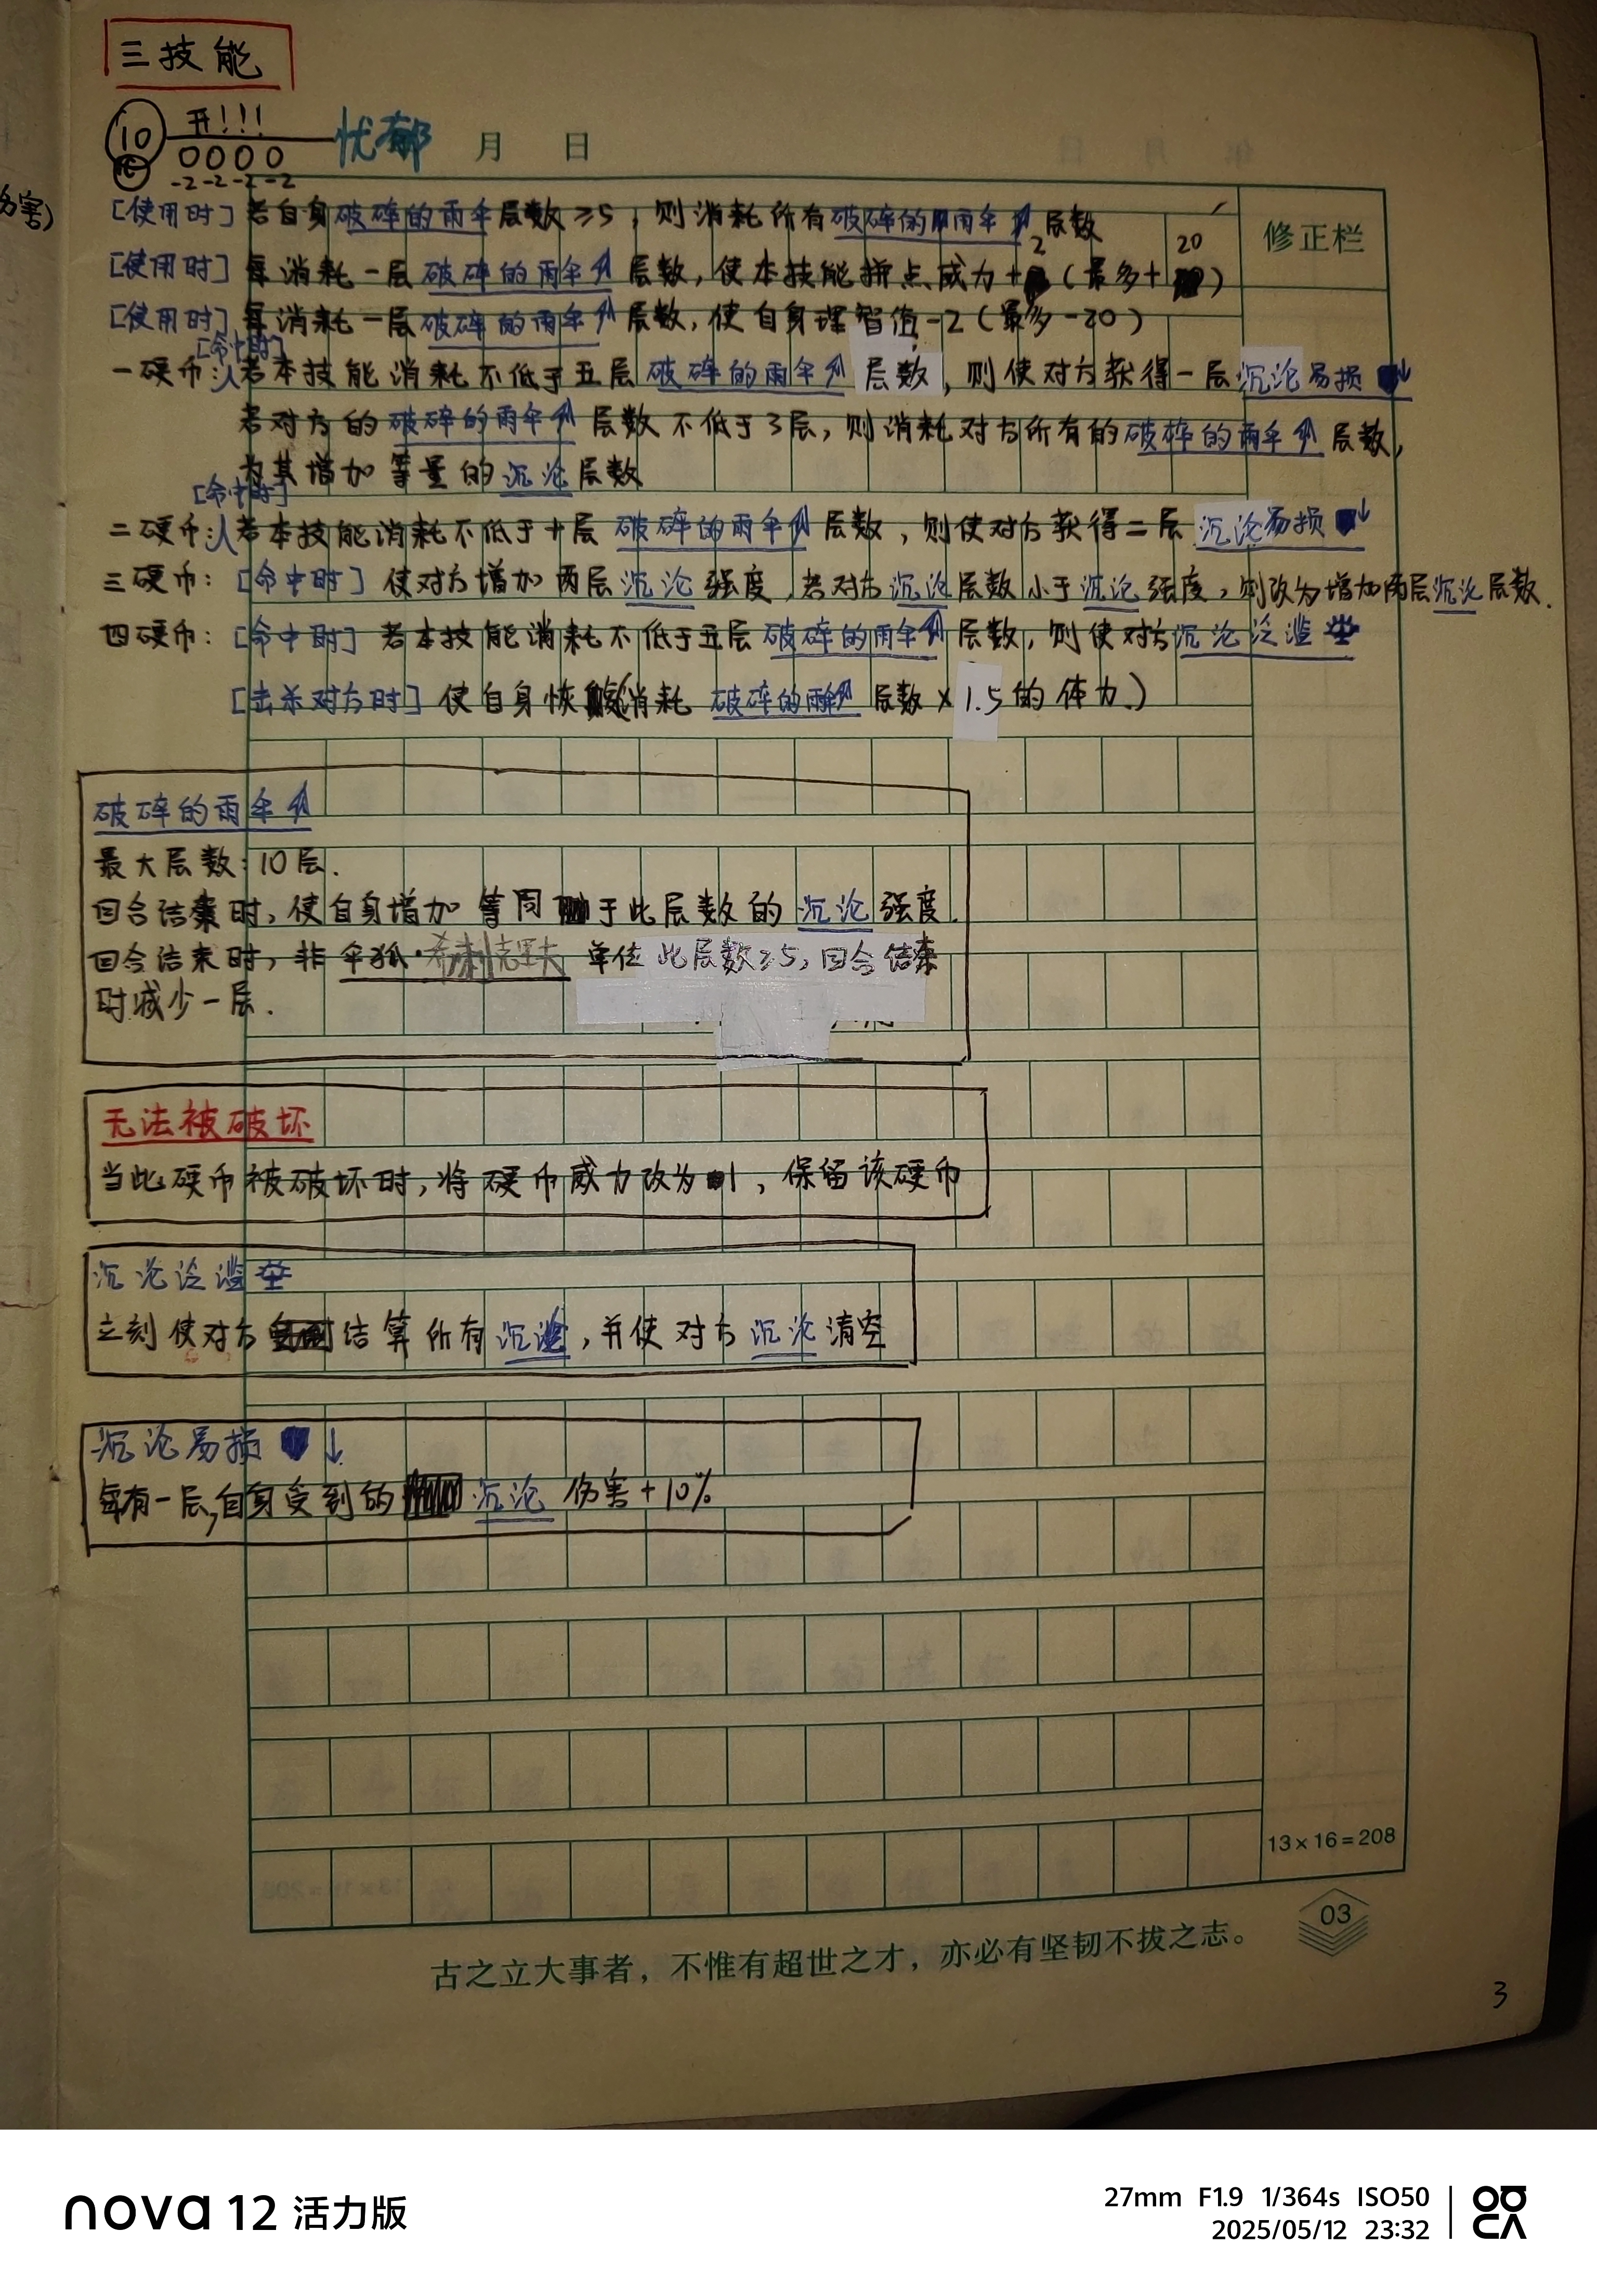 三技能
10 开!!! 忧郁 月 日
0000
-2-2-2-2
伤害)
[使用时] 若自身破碎的雨伞层数≥5，则消耗所有破碎的雨伞层数
修正栏
2 20
[使用时] 每消耗一层破碎的雨伞层数，使本技能拼点威力+ (最多+ )
[使用时] 每消耗一层破碎的雨伞层数，使自身理智值-2(最多-20)
[命中时]
一硬币: 若本技能消耗不低于五层破碎的雨伞层数，则使对方获得一层沉沦易损↓
若对方的破碎的雨伞层数不低于3层，则消耗对方所有的破碎的雨伞层数，
为其增加等量的沉沦层数
[命中时]
二硬币: 若本技能消耗不低于十层破碎的雨伞层数，则使对方获得二层沉沦易损↓
三硬币: [命中时] 使对方增加两层沉沦强度，若对方沉沦层数小于沉沦强度，则改为增加两层沉沦层数.
四硬币: [命中时] 若本技能消耗不低于五层破碎的雨伞层数，则使对方沉沦泛滥
[击杀对方时] 使自身恢复(消耗破碎的雨伞层数×1.5的体力)
破碎的雨伞
最大层数:10层.
回合结束时，使自身增加等同于此层数的沉沦强度.
回合结束时，非伞狐·希斯克里夫单位此层数≥5，回合结束
时减少一层.
无法被破坏
当此硬币被破坏时，将硬币威力改为1，保留该硬币
沉沦泛滥
立刻使对方结算所有沉沦，并使对方沉沦清空
沉沦易损 ↓
每有一层，自身受到的沉沦伤害+10%
13×16=208
03
古之立大事者，不惟有超世之才，亦必有坚韧不拔之志。
3
nova 12 活力版
27mm F1.9 1/364s ISO50
2025/05/12 23:32